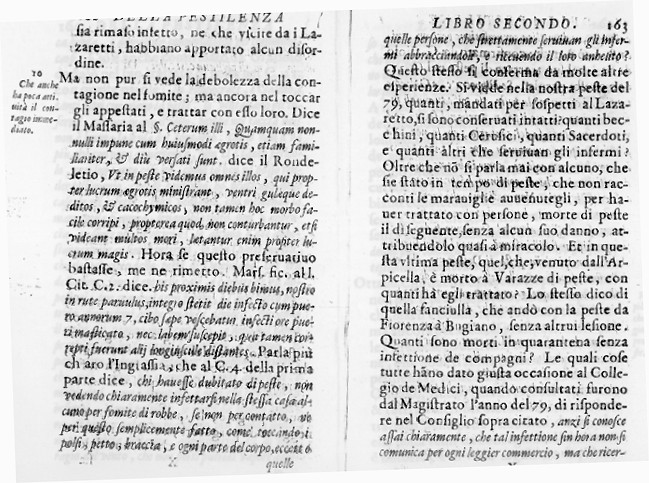 DELLA PESTILENZA
sia rimaso infetto, ne che vscite da i La-
zaretti, habbiano apportato alcun disor-
dine.
10
Che anche
ha poca atti-
uità il con-
tagio imme-
diato.
Ma non pur si vede la debolezza della con-
tagione nel fomite; ma ancora nel toccar
gli appestati, e trattar con esso loro. Dice
il Massaria al §. Ceterum illi, Quamquam non-
nulli impune cum huiusmodi agrotis, etiam fami-
liariter, & diu versati sunt. dice il Ronde-
letio, Vt in peste videmus omnes illos, qui prop-
ter lucrum agrotis ministrant, ventri gulæque de-
ditos, & cacochymicos, non tamen hoc morbo fa-
cile corripi, propterea quod non conturbantur, etsi
videant multos mori, lætantur enim propter lu-
crum magis. Hora se questo preseruatiuo
bastasse, me ne rimetto. Mars. fic. al l.
Cit. C. 2. dice. his proximis diebus bimus, nostro
in rure paruulus, integro stetit die infecto cum pue-
ro annorum 7, cibo sæpe vescebatur infecti ore pue-
ri masticato, nec labem suscepit, qui tamen cor-
repti fuerunt alij longiuscule distantes. Parla più
chiaro l'Ingrassia, che al C. 4 della prima
parte dice, chi hauesse dubitato di peste, non
vedendo chiaramente infettarsi nella stessa casa al-
cuno per fomite di robbe, se non per contatto, ne
per questo semplicemente fatto, come toccando i
polsi, petto, braccia, e ogni parte del corpo, eccetto
X
quelle
LIBRO SECONDO. 163
quelle persone, che strettamente seruiuan gli Infer-
mi abbracciandoli, e riceuendo il loro anhelito?
Questo stesso si conferma da molte altre
esperienze. Si vide nella nostra peste del
79, quanti, mandati per sospetti al Laza-
retto, si sono conseruati intatti: quanti bec-
chini, quanti Cerusici, quanti Sacerdoti,
e quanti altri che seruiuan gli infermi?
Oltre che nō si parla mai con alcuno, che
sie stato in tempo di peste, che non rac-
conti le marauiglie auuenutegli, per ha-
uer trattato con persone, morte di peste
il dì seguente, senza alcun suo danno, at-
tribuendolo quasi à miracolo. Et in que-
sta vltima peste, quel, che, venuto dall'Ar-
picella, è morto à Varazze di peste, con
quanti hà egli trattato? Lo stesso dico di
quella fanciulla, che andò con la peste da
Fiorenza à Bugiano, senza altrui lesione.
Quanti sono morti in quarantena senza
infettione de compagni? Le quali cose
tutte hāno dato giusta occasione al Colle-
gio de Medici, quando consultati furono
dal Magistrato l'anno del 79, di risponde-
re nel Consiglio sopra citato, anzi si conosce
assai chiaramente, che tal infettione sin hora non si
comunica per ogni leggier commercio, ma che ricer-